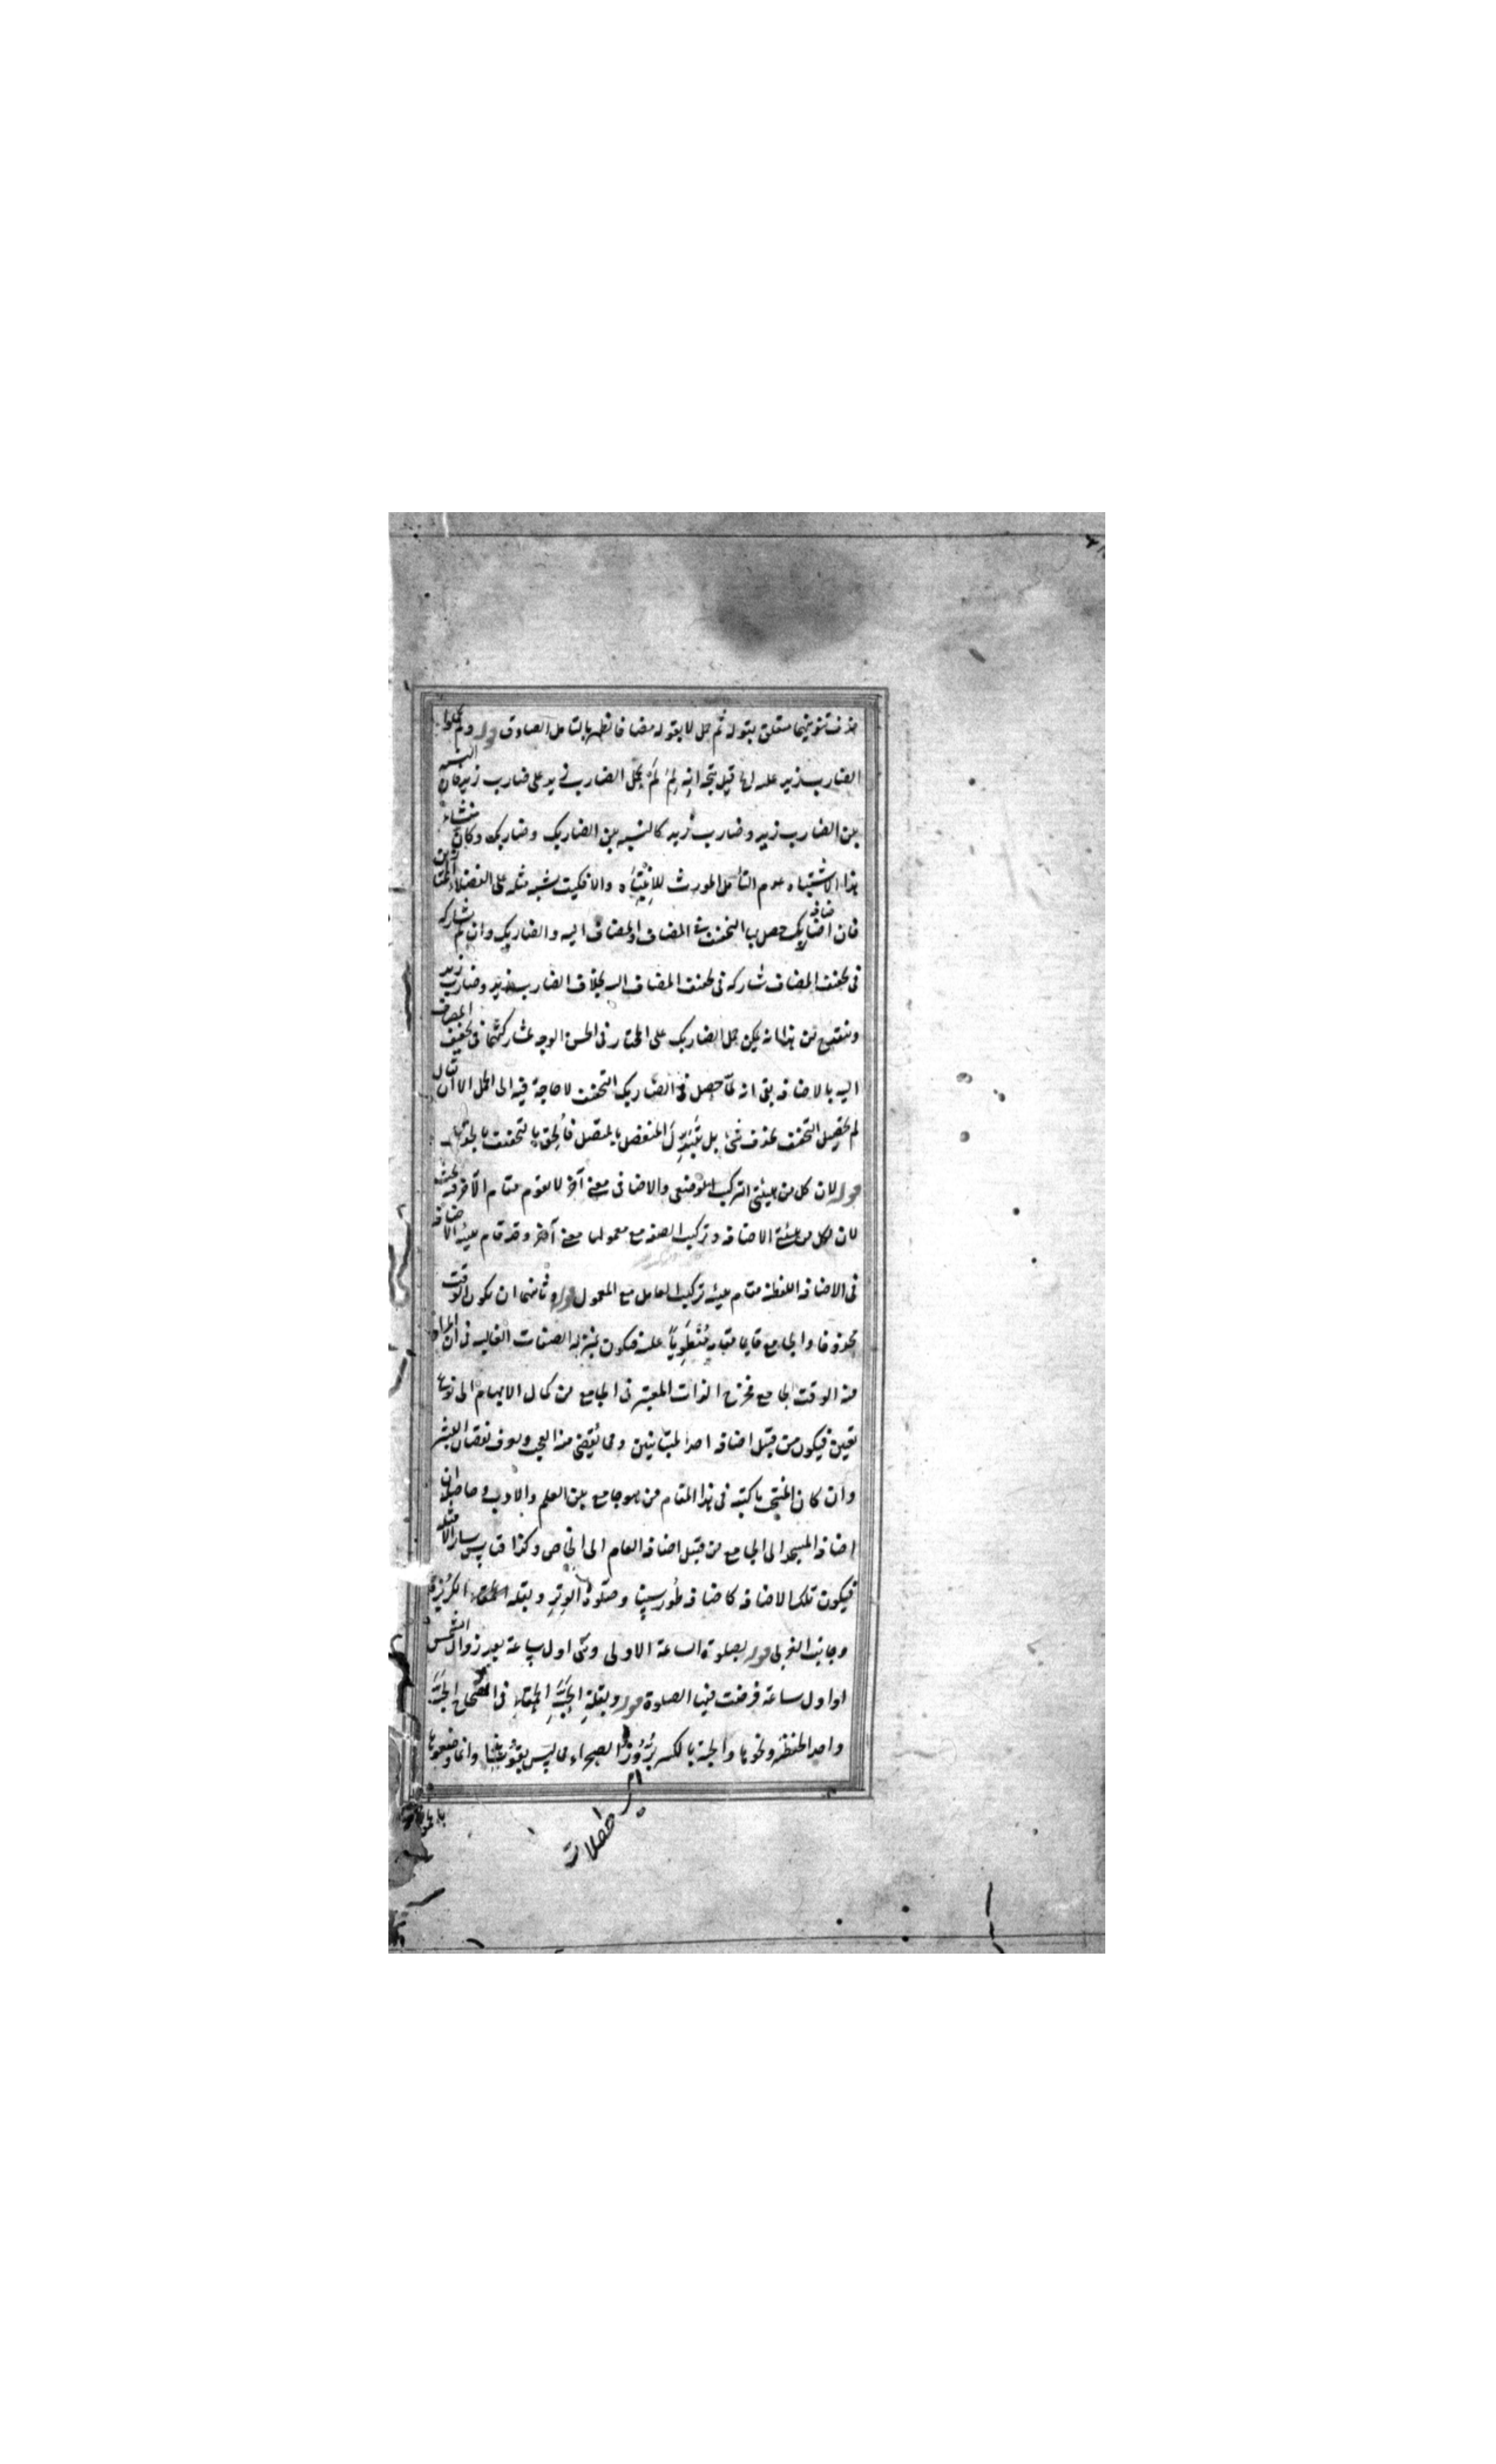 حذف تنوينهما متعلق بقوله ثم حمل لا بقوله مضافا فانظر بالتأمل الصادق قوله ولم يحملوا
الضارب زيد عليه لما قيل يتجه انه لِمَ لَمْ يحمل الضارب زيد على ضارب زيد فان النسبة
بين الضارب زيد وضارب زيد كالنسبة بين الضاربك وضاربك وكان منشاء
هذا الاشتباه عدم التأمل المورث للانتباه والا فكيف يشتبه مثله على الفضلاء
فان اضافة ضاربك حصل بها التخفيف في المضاف والمضاف اليه والضاربك وان لم يشاركه
في تخفيف المضاف شاركه في تخفيف المضاف اليه بخلاف الضارب زيد وضارب زيد
من هذا انه يمكن حمل الضاربك على المختار في الحسن الوجه لمشاركتهما في تخفيف المضاف
اليه بالاضافة بقى انه لما حصل في الضاربك التخفيف لا حاجة فيه الى الحمل الا ان يقال
لم يحصل التخفيف بحذف شئ بل بتبديل المنفصل بالمتصل
قوله لان كل من هيئتى التركيب الوصفى والاضافى معنى آخر لا يقوم مقام الآخر فيه بحث
لان لكل من هيئة الاضافة وتركيب الصفة مع معمولها معنى آخر وقد قام هيئة الاضافة
في الاضافة اللفظية مقام هيئة تركيب العامل مع المعمول قوله وثانيهما ان يكون الوقت
محذوفا والجامع قايما مقامه منطويا عليه فيكون بمنزلة الصفات الغالبة في ان المراد
منه الوقت الجامع فخرج الذات المعتبر في الجامع من كمال الابهام الى نوع
تعين فيكون من قبيل اضافة احد المتباينين ومما يقضى منه العجب ويعرف نقصان البشر
وان كان ما كتبه في هذا المقام من هو جامع بين العلم والادب
اضافة المسجد الى الجامع من قبيل اضافة العام الى الخاص وكذا قياس ساير الامثلة
فيكون تلك الاضافة كاضافة طور سينا وصلوة الوتر وبقلة الحمقاء
وجانب الغربى قوله بصلوة الساعة الاولى وهى اول ساعة بعد زوال الشمس
او اول ساعة فرضت فيها الصلوة قوله وبقلة الحبة الحمقاء في الصحاح الحبة
واحد الحنطة ونحوها والحبة بالكسر بزور الصحراء مما ليس بقوت